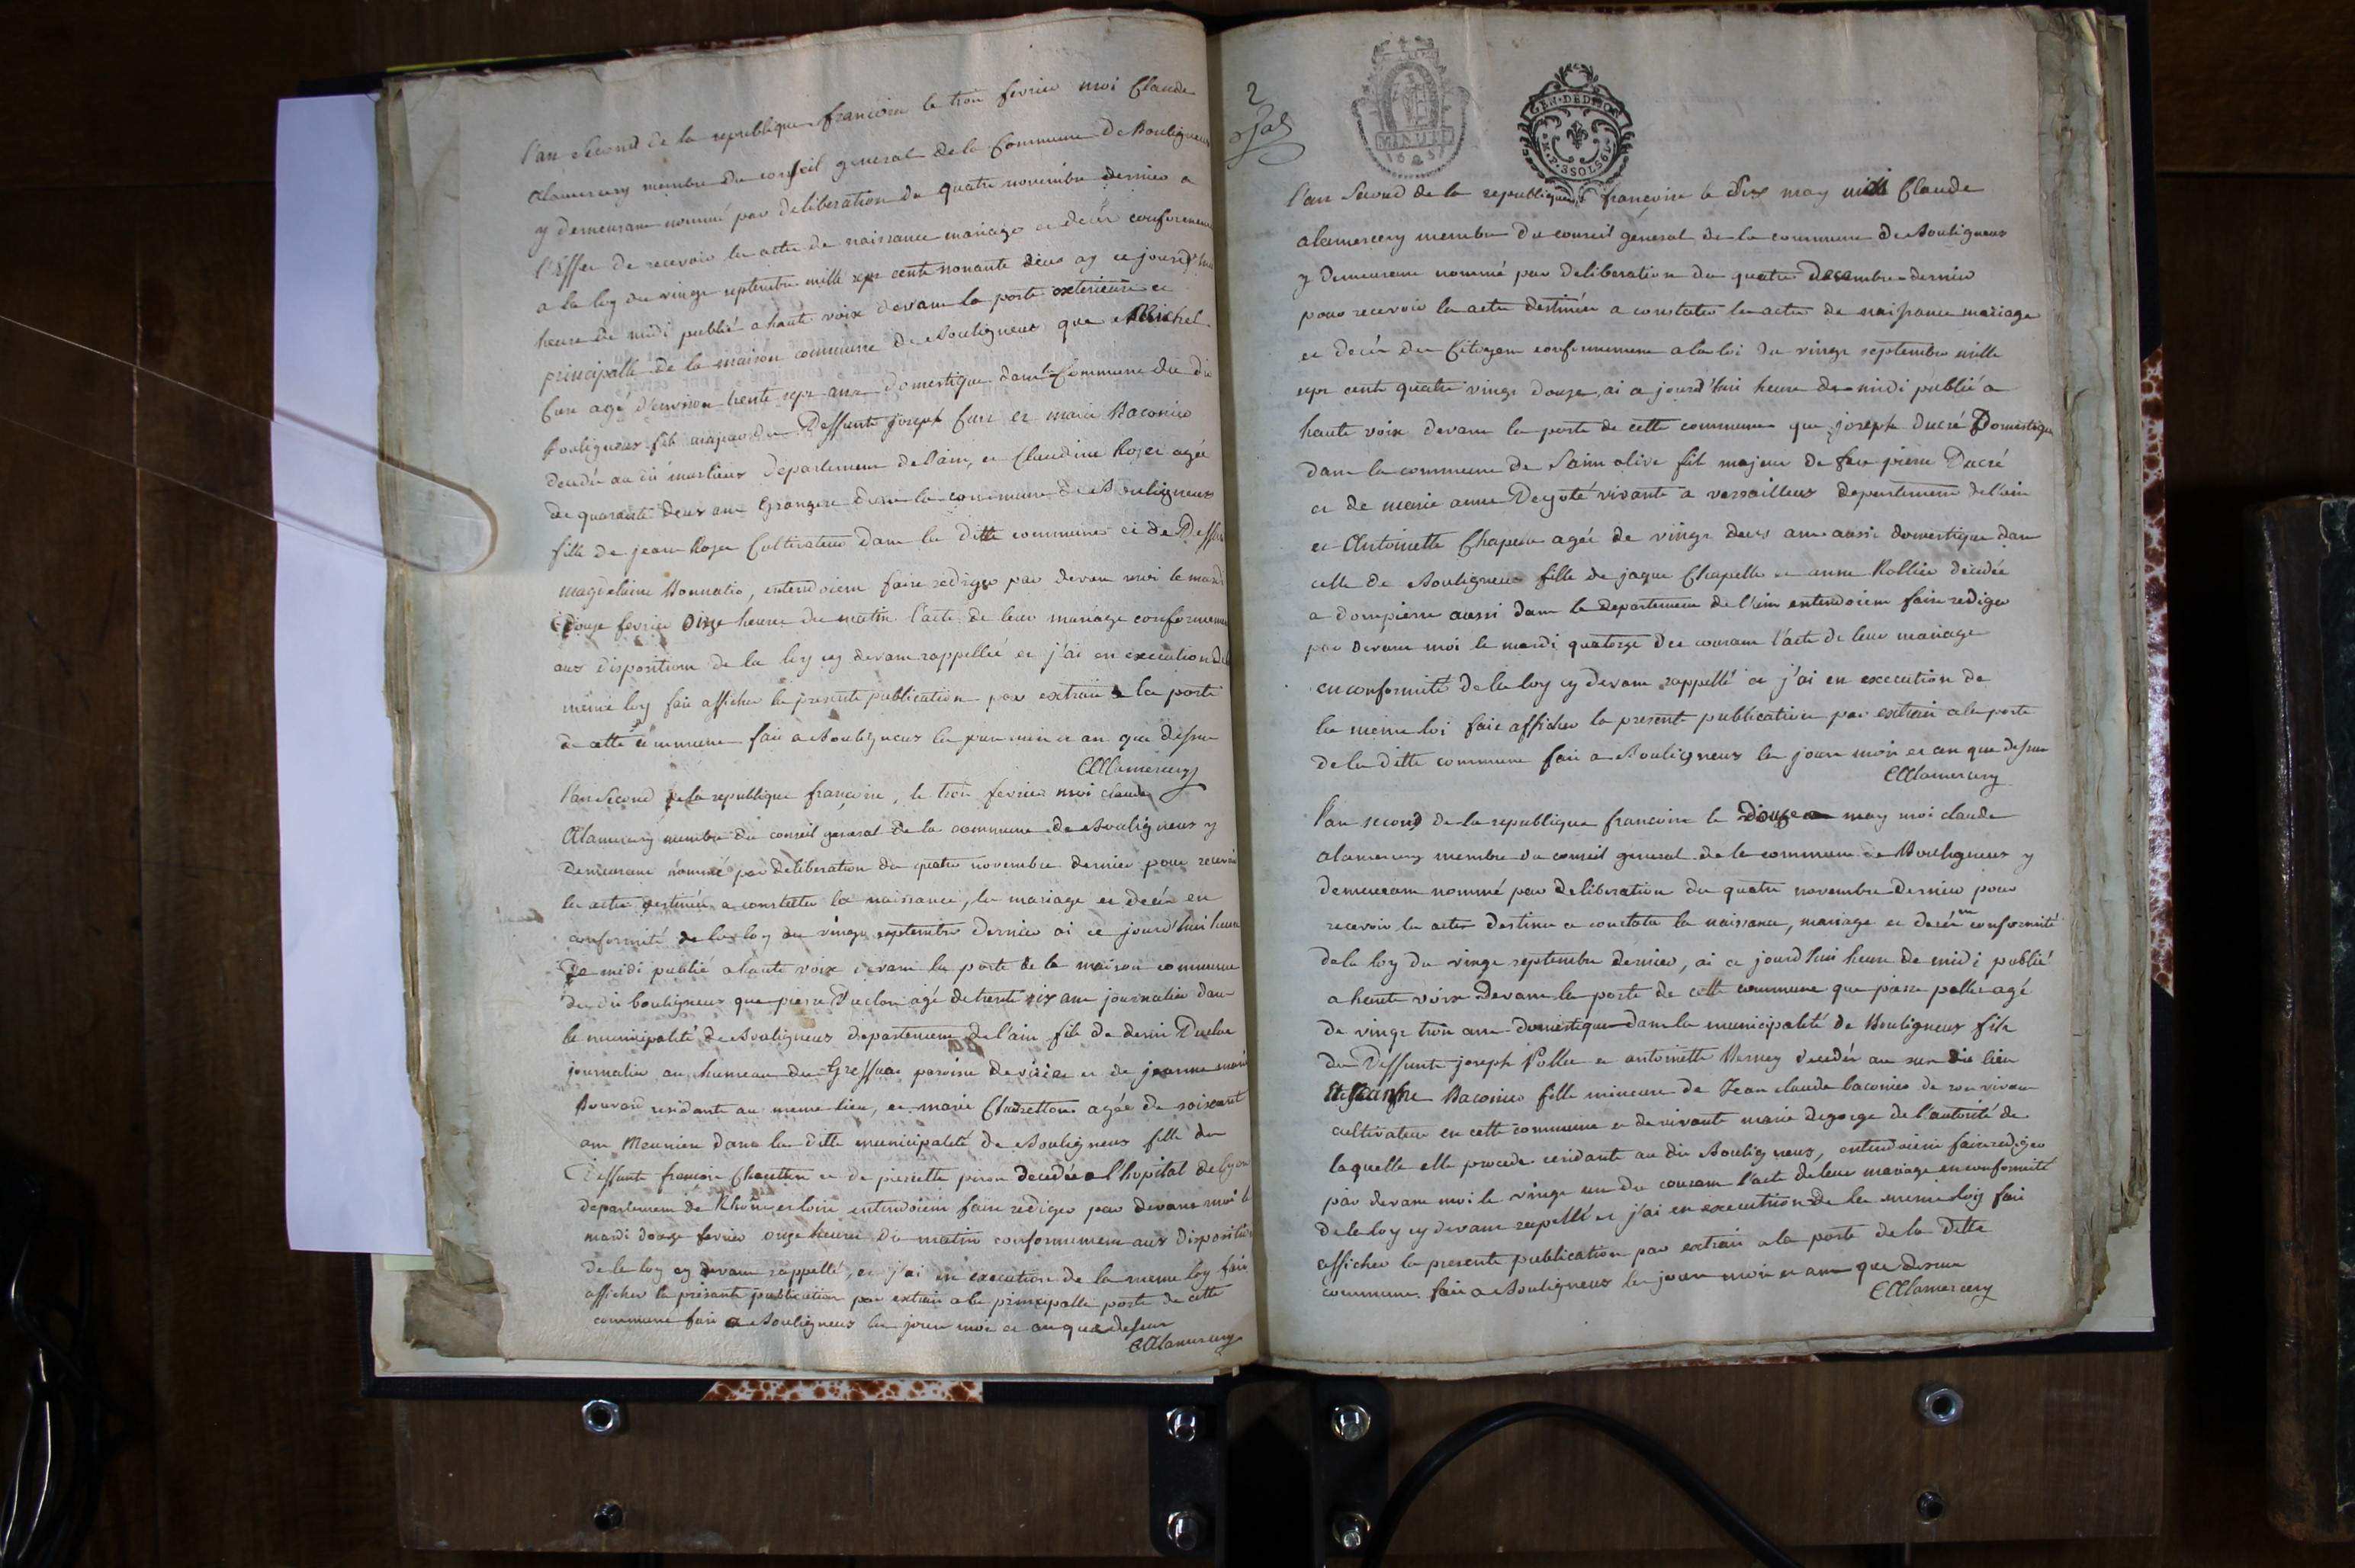 l'an second de la republique francoise le trois fevrier moi Claude
Alamercery membre du conseil general de la Commune de Bouligneux
y demeurant nommé par deliberation du quatre novembre dernier a
l'effet de recevoir les actes de naissance mariage et decès conformement
a la loy du vingt septembre mille sept cents nonante deux ay ce jourd'hui
heure de midi publié a haute voix devant la porte exterieure et
principalle de la maison commune de Bouligneux que Michel
agé d'environ trente sept ans domestique dans la Commune du dit
Bouligneux fils majeur de deffunts joseph et marie Baconier
decedés au dit departement de l'ain, et Claudine Roze agée
de quarante deux ans Grangere dans la commune de Bouligneux
fille de jean Roze Cultivateur dans la ditte commune et de Deffunte
magdelaine Bonnatie, entendoient faire rediger par devant moi le mardi
Douze fevrier onze heures du matin l'acte de leur mariage conformement
aux dispositions de la loy cy devant rappellée et j'ai en execution de la
même loy fait afficher la presente publication par extrait a la porte
de cette commune fait a Bouligneux les jour mois et an que dessus
CAlamercery
l'an Second de la republique francoise, le trois fevrier moi claude
Alamercery membre du conseil general de la commune de Bouligneux y
Demeurant nommé par deliberation du quatre novembre dernier pour recevoir
les actes destinés a constater la naissance, les mariage et decès en
conformité de la loy du vingt septembre dernier ai ce jourd'hui heure
De midi publié a haute voix devant la porte de la maison commune
du dit bouligneux que pierre Duclos agé de trente six ans journalier dans
la municipalité de Bouligneux departement de l'ain fils de denis Duclos
journalier au hameau de paroisse de et de jeanne marie
Bouvard residante au meme lieu, et marie agée de soixante
ans Meuniere dans la ditte municipalité de Bouligneux fille de
Deffunts francois et de pierrette decedée a l'hopital de Lyon
departement de Rhône et loire entendoient faire rediger par devant moi le
mardi douze fevrier onze heures du matin conformement aux dispositions
de la loy cy devant rappellé, et j'ai en execution de la meme loy fait
afficher la presente publication par extrait a la principalle porte de cette
commune fait a Bouligneux les jour mois et an que dessus
CAlamercery
2
GEN. DE DIJON
M.P. 3 SOLS 6 D
l'an Second de la republique françoise le dix may moi Claude
alamercery membre du conseil general de la commune de Bouligneux
y demeurant nommé par deliberation du quatre Decembre dernier
pour recevoir les actes destinées a constater les actes de naissance mariage
et decès des Citoyens conformement a la loi du vingt septembre mille
sept cents quatre vingt douze, ai a jourd'hui heure de midi publié a
haute voix devant la porte de cette commune que joseph Ducré Domestique
dans la commune de Saint olive fils majeur de feu pierre Ducré
et de marie anne Deyoté vivante a versailleux departement de l'ain
et Antoinette Chapelle agée de vingt deux ans aussi domestique dans
celle de Bouligneux fille de jaque Chapelle et anne Rollier decedée
a dompierre aussi dans le departement de l'ain entendoient faire rediger
par devant moi le mardi quatorze du courant l'acte de leur mariage
en conformité de la loy cy devant rappellé et j'ai en execution de
la meme loi fait afficher la presente publication par extrait a la porte
de la ditte commune fait a Bouligneux les jour mois et an que dessus
CAlamercery
l'an second de la republique francoise le Douze may moi claude
alamercery membre du conseil general de la commune de Bouligneux y
demeurant nommé par deliberation du quatre novembre dernier pour
recevoir les actes destinés a constater la naissance, mariage et decès en conformité
de la loy du vingt septembre dernier, ai ce jourd'hui heure de midi publié
a haute voix Devant la porte de cette commune que pierre pollet agé
de vingt trois ans domestique dans la municipalité de Bouligneux fils
de Deffunts joseph Pollet et antoinette Verney decedés au sus dit lieu
Et Jeanne Baconier fille mineure de Jean claude baconier de son vivant
cultivateur en cette commune et de vivante marie degorge de l'autorité de
laquelle elle procede residante au dit Bouligneux, entendoient faire rediger
par devant moi le vingt un du courant l'acte de leur mariage en conformité
de la loy cy devant rapellé et j'ai en execution de la meme loy fait
afficher la presente publication par extrait a la porte de la ditte
commune. fait a Bouligneux les jour mois et an que dessus
CAlamercery